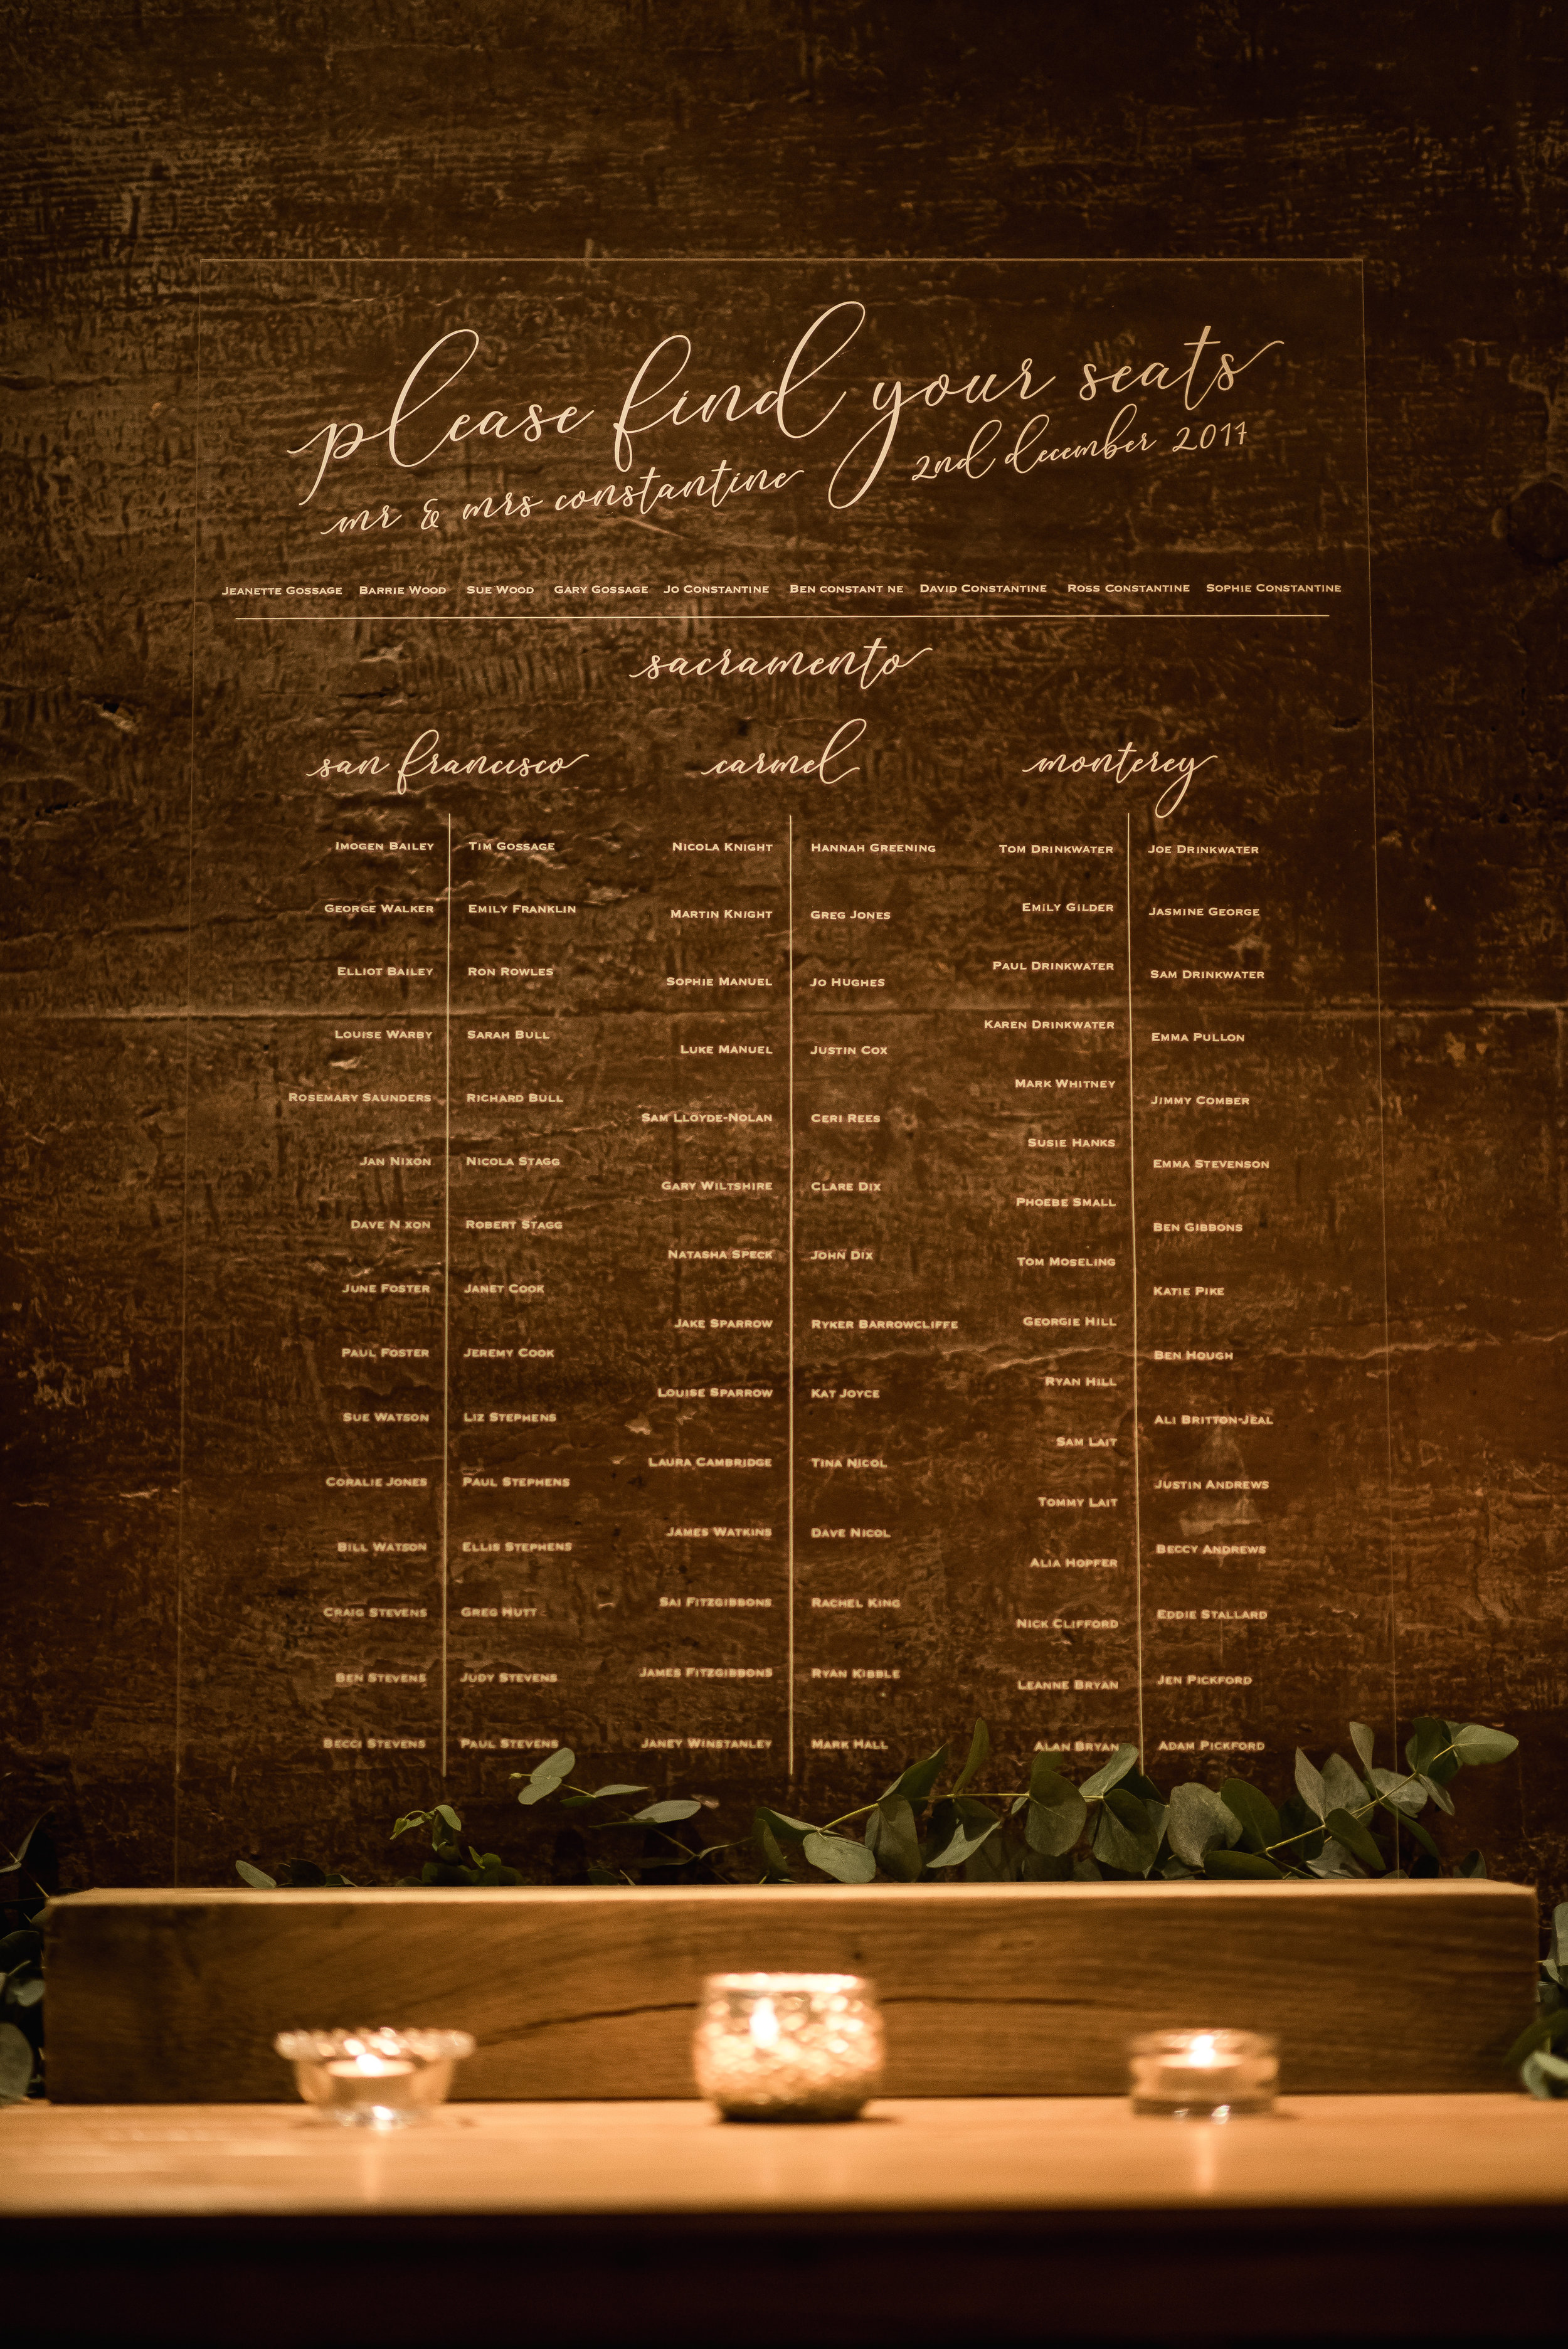 please find your seats
mr & mrs constantine 2nd december 2017
Jeanette Gossage Barrie Wood Sue Wood Gary Gossage Jo Constantine Ben constant ne David Constantine Ross Constantine Sophie Constantine
sacramento
san francisco
Imogen Bailey Tim Gossage
George Walker Emily Franklin
Elliot Bailey Ron Rowles
Louise Warby Sarah Bull
Rosemary Saunders Richard Bull
Jan Nixon Nicola Stagg
Dave N xon Robert Stagg
June Foster Janet Cook
Paul Foster Jeremy Cook
Sue Watson Liz Stephens
Coralie Jones Paul Stephens
Bill Watson Ellis Stephens
Craig Stevens Greg Hutt
Ben Stevens Judy Stevens
Becci Stevens Paul Stevens
carmel
Nicola Knight Hannah Greening
Martin Knight Greg Jones
Sophie Manuel Jo Hughes
Luke Manuel Justin Cox
Sam Lloyde-Nolan Ceri Rees
Gary Wiltshire Clare Dix
Natasha Speck John Dix
Jake Sparrow Ryker Barrowcliffe
Louise Sparrow Kat Joyce
Laura Cambridge Tina Nicol
James Watkins Dave Nicol
Sai Fitzgibbons Rachel King
James Fitzgibbons Ryan Kibble
Janey Winstanley Mark Hall
monterey
Tom Drinkwater
Emily Gilder
Paul Drinkwater
Karen Drinkwater
Mark Whitney
Susie Hanks
Phoebe Small
Tom Moseling
Georgie Hill
Ryan Hill
Sam Lait
Tommy Lait
Alia Hopfer
Nick Clifford
Leanne Bryan
Alan Bryan
Joe Drinkwater
Jasmine George
Sam Drinkwater
Emma Pullon
Jimmy Comber
Emma Stevenson
Ben Gibbons
Katie Pike
Ben Hough
Ali Britton-Jeal
Justin Andrews
Beccy Andrews
Eddie Stallard
Jen Pickford
Adam Pickford